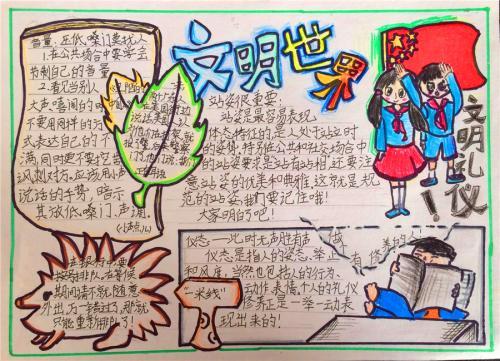 文明世界
文明礼仪!
音量:压低嗓门莫扰人
1.在公共场合中要学会
节制自己的音量
2.看见当别人
大声喧闹的时
不要用同样的方
式表达自己的不
满,同时更不要挖苦
讽刺对方,应该用小声
说话的手势,暗示
其放低嗓门、声调。
(小声点儿)
站姿很重要,
站姿是最容易表现
体态特征的是人处于站立时
的姿势,特别在公共和社交场合中
的站姿要求是站有站相,还要注
意站姿的优美和典雅,这就是规
范的站姿,我们要记住哦!
大家明白了吧!
在银行中要
按号排队,在等候
期间请不就随意
外出,万一错过了,那就
只能重新排队了!
"一米线"
仪态—此时无声胜有声
仪态是指人的姿态、举止
和风度,当然也包括人的行为、
动作、表情,个人的礼仪
修养正是一举一动表
现出来的!
做
有修养的人!